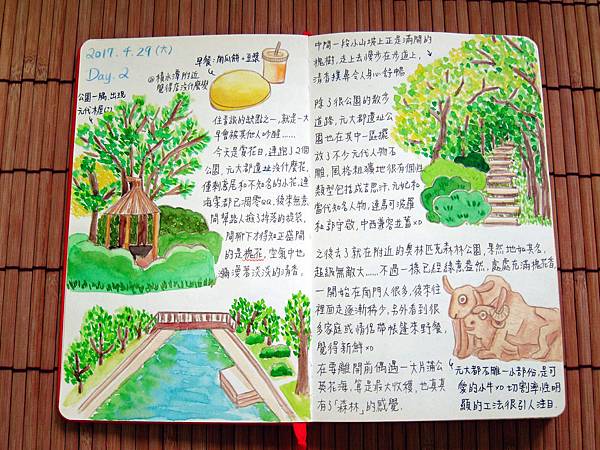 2017.4.29 (六)
Day. 2
早餐:南瓜餅+豆漿
@積水潭附近
覺得店沒什麼變
公園一隅,出現
元代木屋(?)
住青旅的缺點之一,就是一大
早會被其他人吵醒……
今天是賞花日,連跑了2個
公園,元大都遺址沒什麼花,
僅剩鳶尾和不知名的小花,連
海棠都已凋零QQ,後來無意
間幫路人撿了掉落的披袋,
閒聊下才得知正盛開
的是槐花,空氣中也
瀰漫著淡淡的清香。
中間一段小山坡上正是滿開的
槐樹,走上去慢步在步道上,
清香撲鼻令人身心舒暢
除了很公園的散步
道路,元大都遺址公
園也在其中一區擺
放了不少元代人物石
雕,風格粗獷也很有個性
類型包括成吉思汗、元妃和
當代知名人物,連馬可波羅
和郭守敬,中西兼容並蓄xD
之後去了就在附近的奧林匹克森林公園,果然地如其名,
超級無敵大……不過一樣已經綠意盎然,處處充滿槐花香
一開始在南門人很多,後來往
裡面走逐漸稀少,另外看到很
多家庭或情侶帶帳篷來野餐,
覺得新鮮xD
在要離開前偶遇一大片蒲公
英花海,算是最大收穫,也真真
有了「森林」的感覺.
元大都石雕一小部份,是可
愛的小牛xD 切割率性明
顯的工法很引人注目.